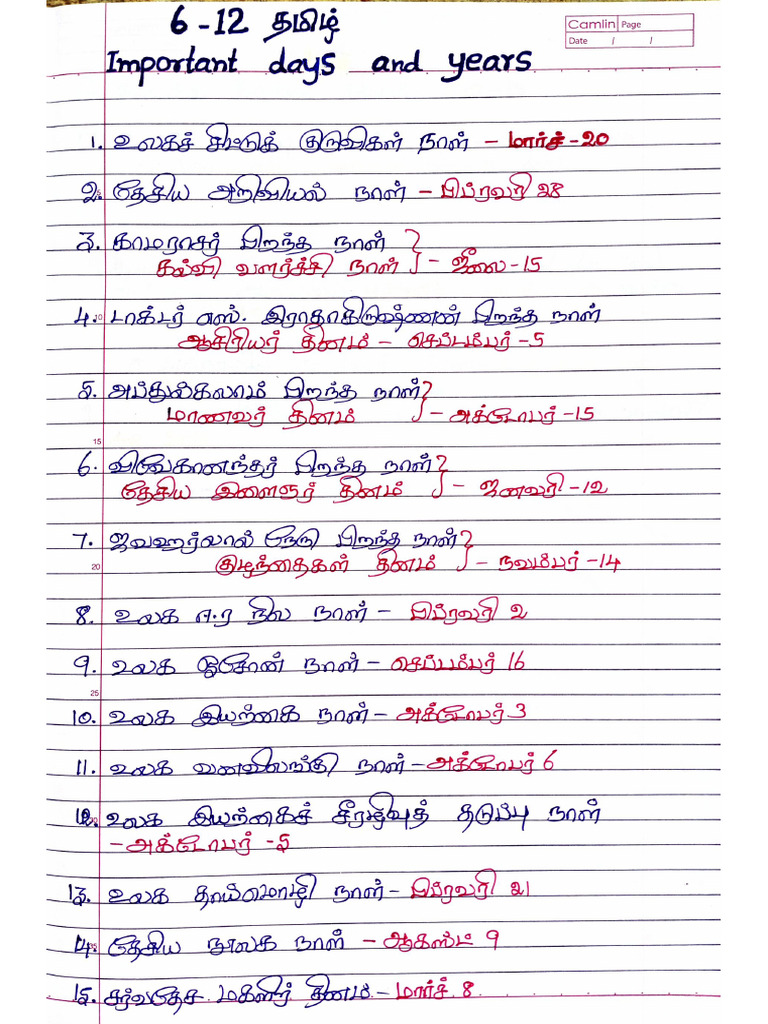 Camlin Page
Date / /
6-12 தமிழ்
Important days and years
1. உலகச் சிட்டுக் குருவிகள் நாள் - மார்ச் -20
2. தேசிய அறிவியல் நாள் - பிப்ரவரி 28
3. காமராசர் பிறந்த நாள்
கல்வி வளர்ச்சி நாள் - ஜீலை -15
4. டாக்டர் எஸ். இராதாகிருஷ்ணன் பிறந்த நாள்
ஆசிரியர் தினம் - செப்டம்பர் -5
5. அப்துல்கலாம் பிறந்த நாள்
மாணவர் தினம் - அக்டோபர் -15
15
6. விவேகானந்தர் பிறந்த நாள்
தேசிய இளைஞர் தினம் - ஜனவரி -12
7. ஜவஹர்லால் நேரு பிறந்த நாள்
20 குழந்தைகள் தினம் - நவம்பர் -14
8. உலக ஈர நில நாள் - பிப்ரவரி 2
9. உலக ஓசோன் நாள் - செப்டம்பர் 16
25
10. உலக இயற்கை நாள் - அக்டோபர் 3
11. உலக வனவிலங்கு நாள் - அக்டோபர் 6
12. உலக இயற்கைச் சீரழிவுத் தடுப்பு நாள்
- அக்டோபர் -5
13. உலக தாய்மொழி நாள் - பிப்ரவரி 21
14. தேசிய நூலக நாள் - ஆகஸ்ட் 9
15. சர்வதேச மகளிர் தினம் - மார்ச் 8